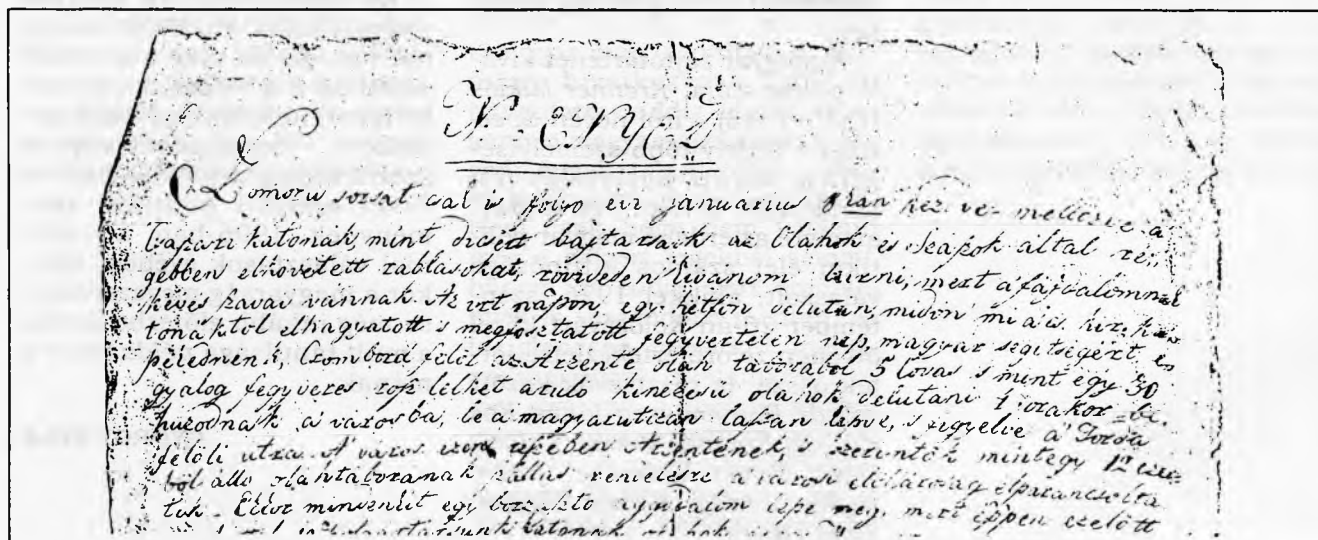 N. ENYED
Szomoru sorsat  is folyo evi januarius 8ikán kezve mellette a
Csaszari katonak, mint dicsért bajtarsaik az Olahok és Szaszok altal 
gebben elkövetett rablasokat, rövideden kivánom leirni, mert a fájdalomnak
kevés szavai vannak. Az irt nápon, egy hétfön délután, midön mi a cs. kir. ka
tonáktol elhagyatott s megfosztatott fegyvertelen nép, magyar segitségért, e
pelednénk, Crombord felöl az Axente oláh táborábol 5 lovas s mint egy 30
gyalog fegyveres rosz lelket arulo kinézésü oláhok délutáni 1 orakor be
huzodnak a városba, le a magyarutzán lassan lépve, s figyelve a Torda
felöli utza. A város  Axentenek, s szerintök mintegy 12 eze
böl állo olahtaboranak szállás rendelésre a városi elöljároság elparancsolta
tik. Ettöl mindenkit egy borzaszto aggodalom lepe meg, mert éppen ezelött